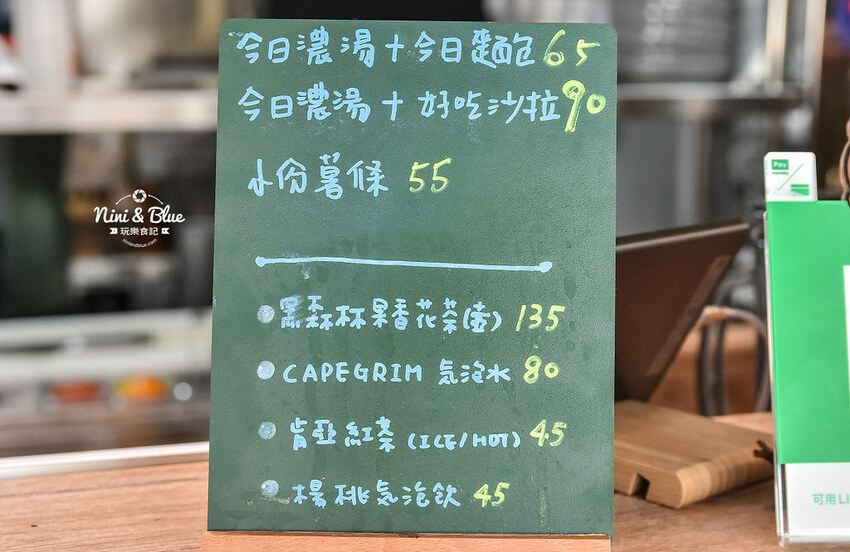 今日濃湯+今日麵包 65
今日濃湯+好吃沙拉 90
小份薯條 55
黑森林果香花茶(壺) 135
CAPEGRIM 氣泡水 80
肯亞紅茶 (ICE/HOT) 45
楊桃氣泡飲 45
Nini & Blue
玩樂食記
niniandblue.com
Pay
可用LI